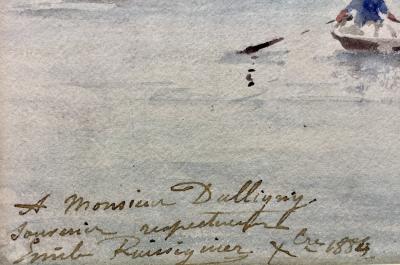 A Monsieur Dalligny
Souvenir respectueux
Emile Rossignier Xbre 1884